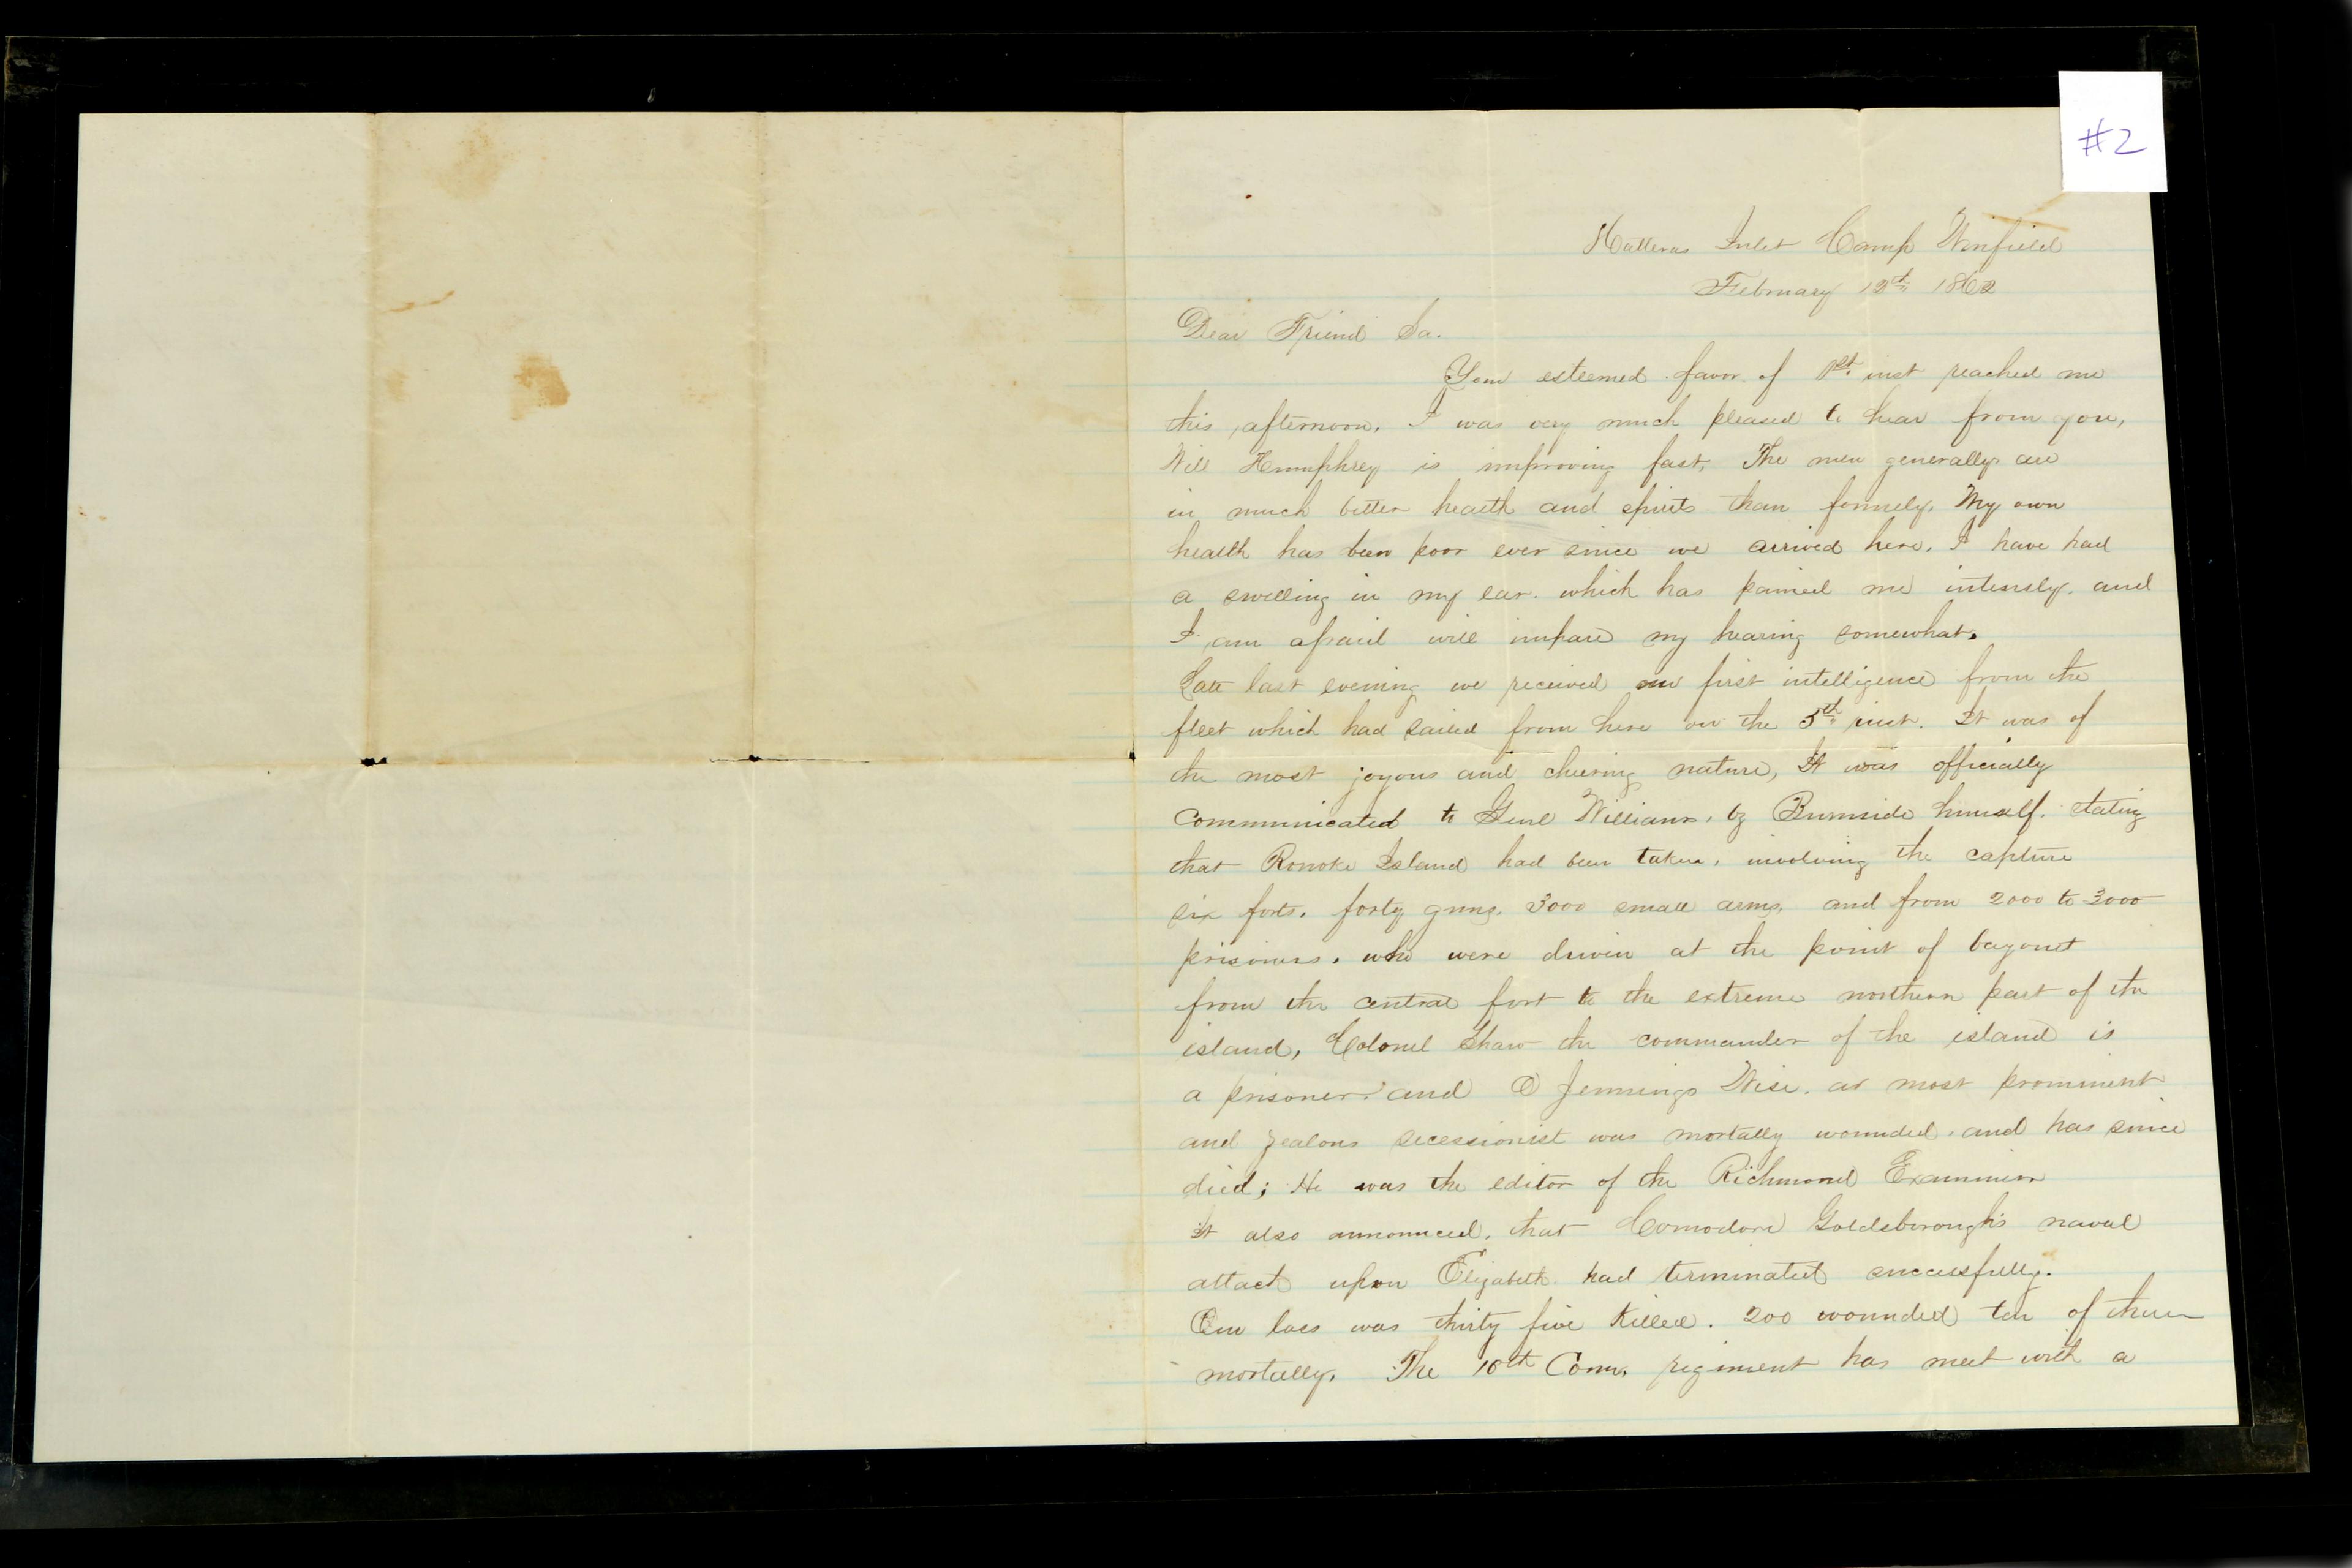 #2
Hatteras Inlet Camp Winfield
February 12th 1862
Dear Friend Sa.
Your esteemed favor of 1st. inst reached me
this afternoon. I was very much pleased to hear from you,
Will Humphrey is improving fast. The men generally are
in much better health and spirits than formely. My own
health has been poor ever since we arrived here. I have had
a swelling in my ear. which has pained me intensly. and
I am afraid will impare my hearing somewhat.
Late last evening we received our first intelligence from the
fleet which had sailed from here on the 5th inst. It was of
the most joyous and cheering nature, It was officially
communicated to Genl Williams. by Burnside himself. stating
that Ronoke Island had been taken. involving the capture
six forts. forty guns. 3000 small arms, and from 2000 to 3000
prisoners. who were driven at the point of bayonet
from the central fort to the extreme northern part of the
island, Colonel Shaw the commander of the island is
a prisoner. and O Jennings Wise. at most prominent
and zealous secessionist was mortally wounded. and has since
died; He was the editor of the Richmond Examiner
It also announced. that Comodore Goldsborough's naval
attact upon Elizabeth had terminated successfully.
Our loss was thirty five killed. 200 wounded ten of them
mortally. The 10th Conn. regiment has meet with a